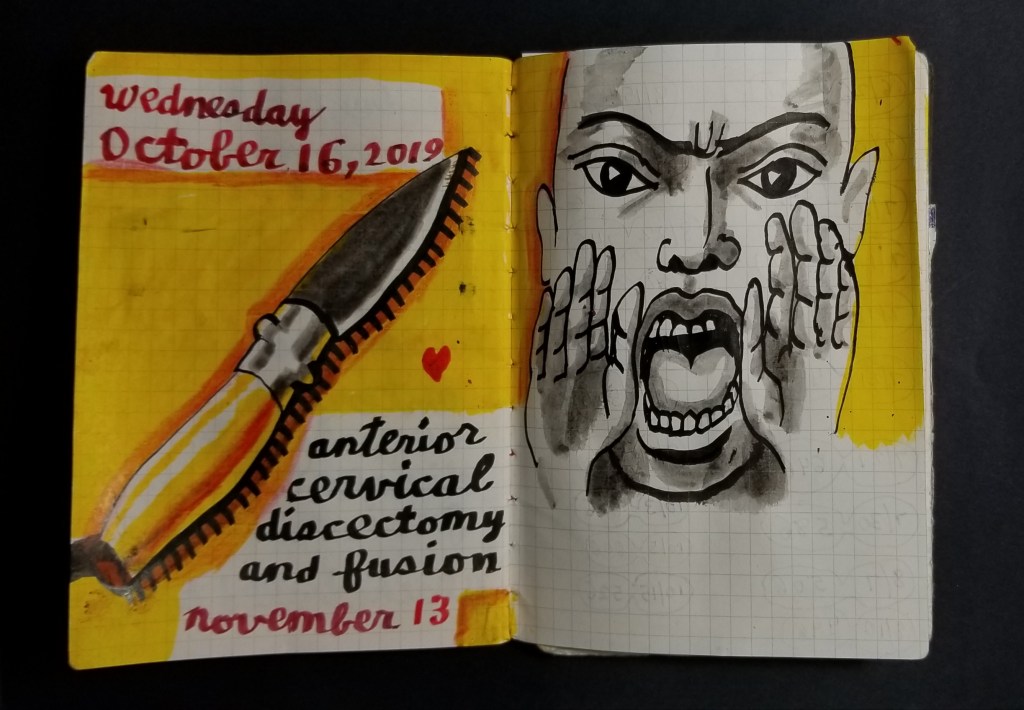 wednesday
October 16, 2019
anterior
cervical
discectomy
and fusion
november 13